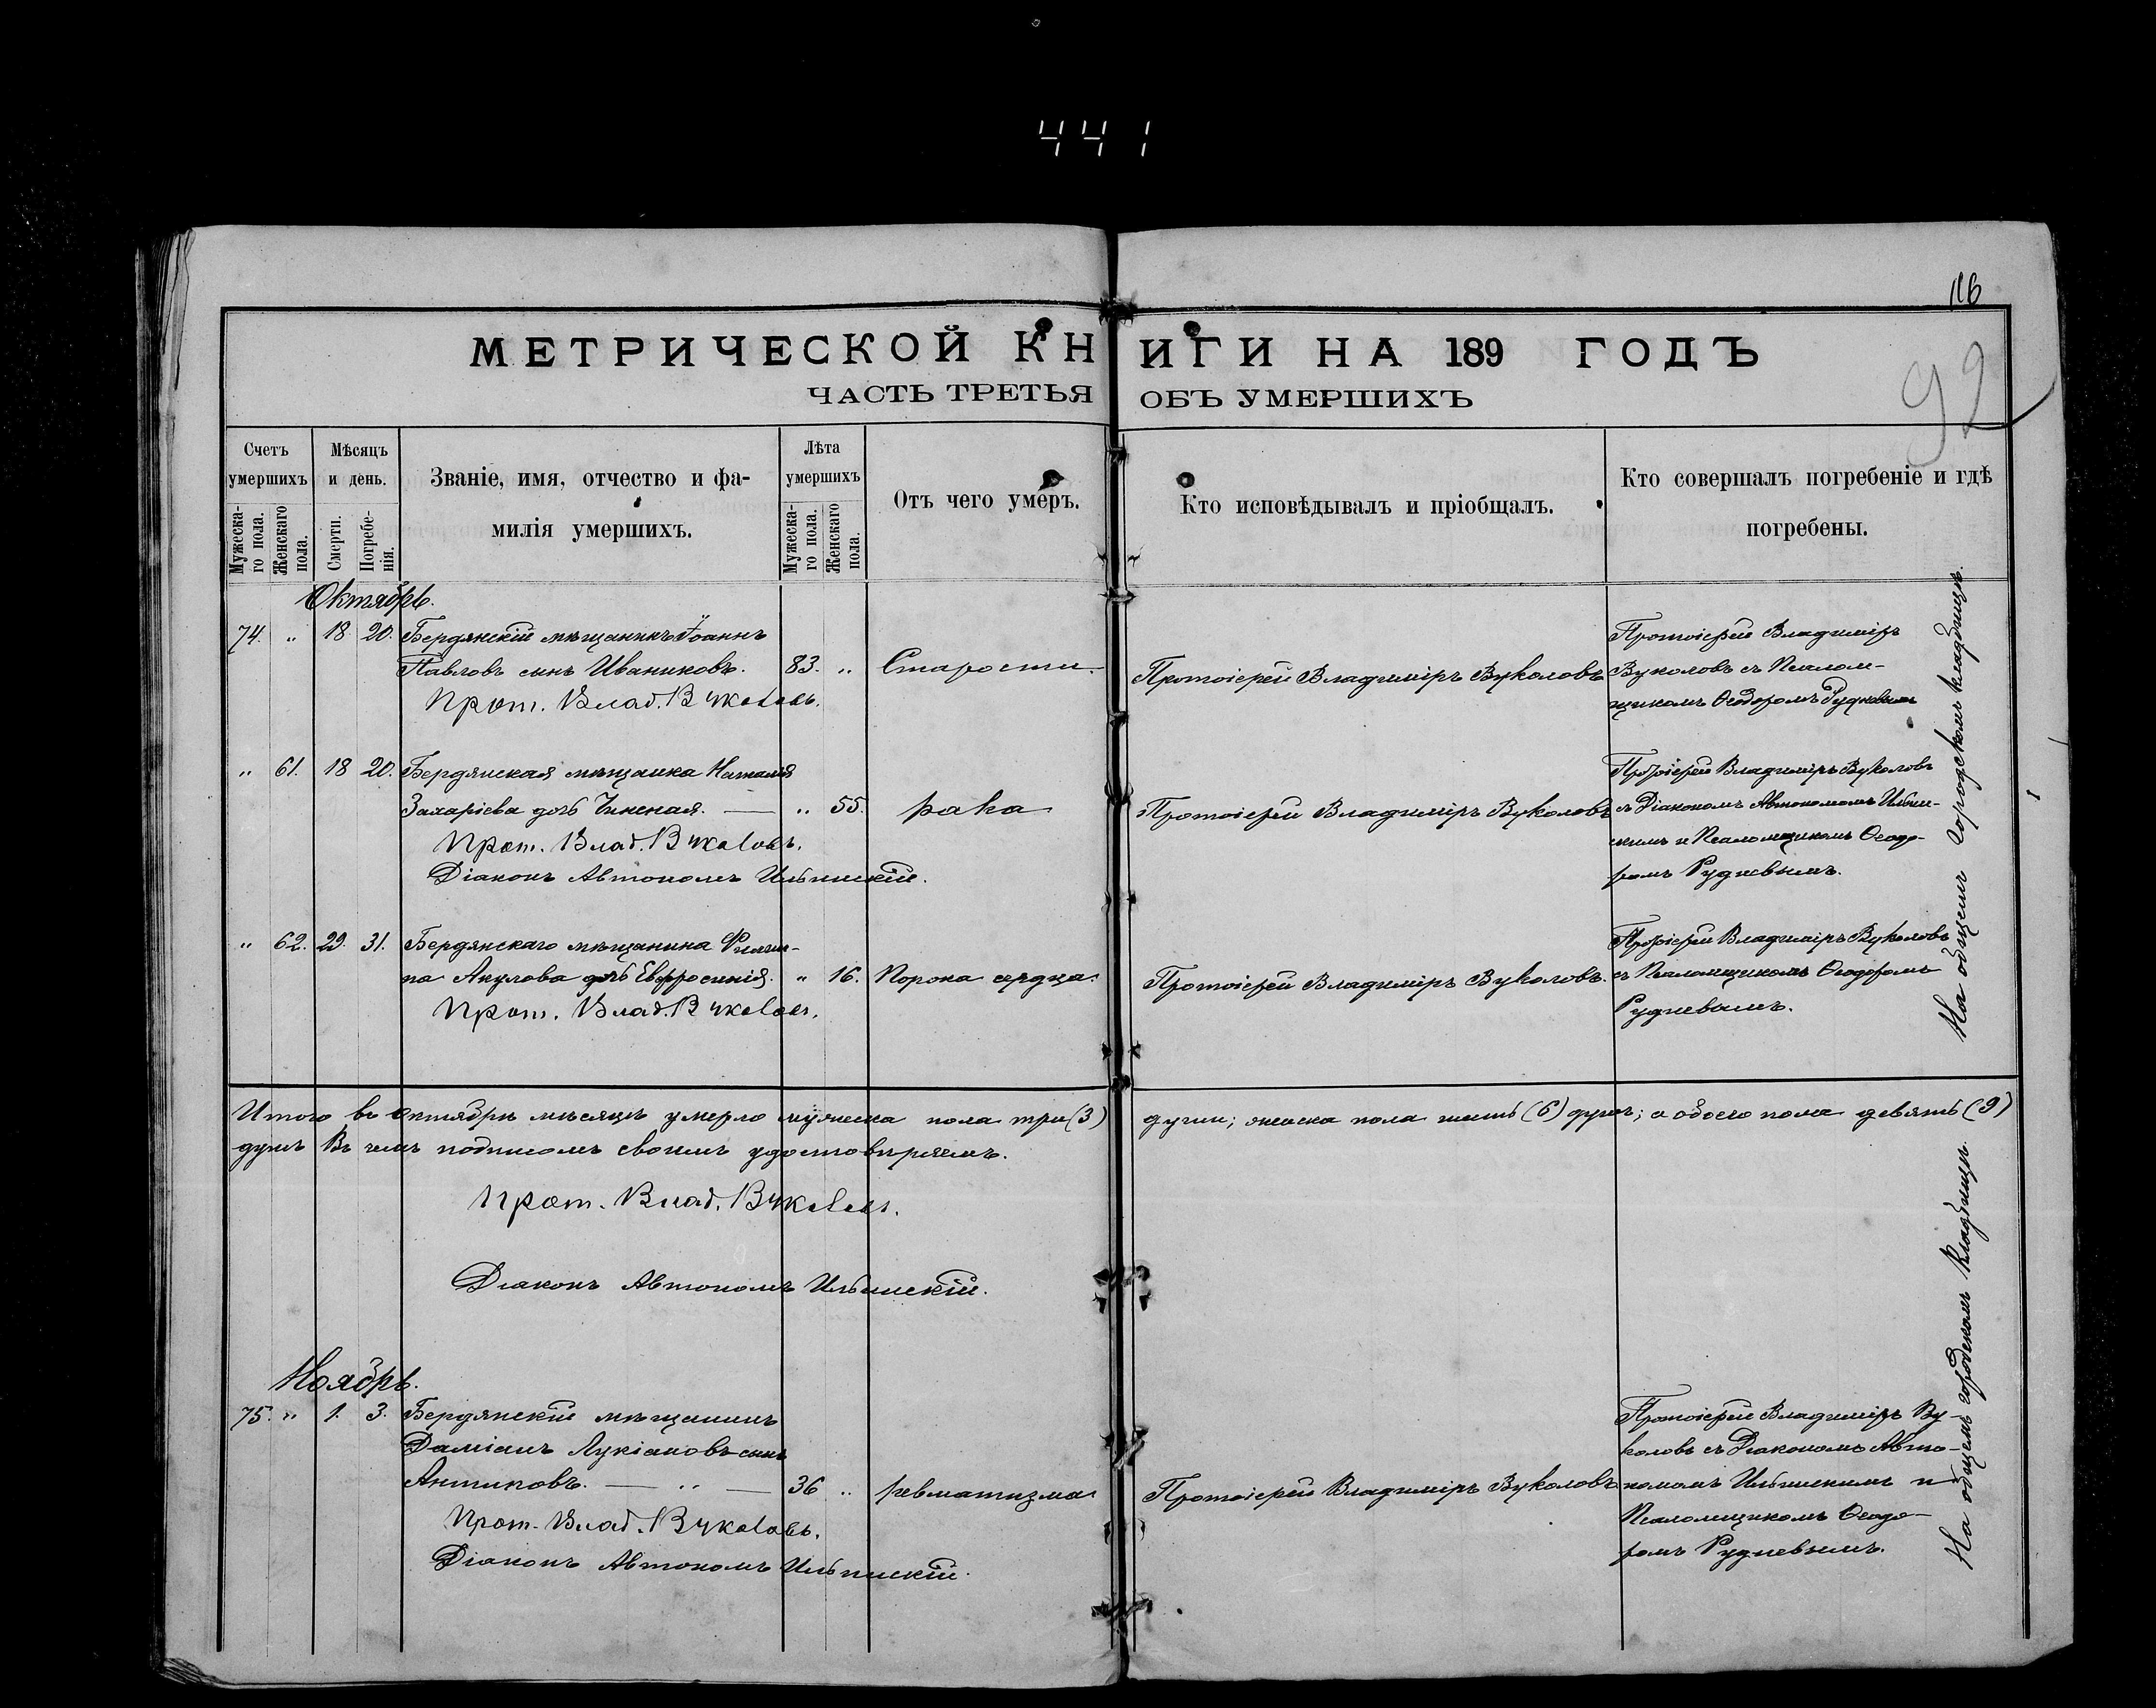 441
116
92
МЕТРИЧЕСКОЙ КНИГИ НА 189 ГОДЪ
ЧАСТЬ ТРЕТЬЯ ОБЪ УМЕРШИХЪ
Счетъ умершихъ
Мужеска-го пола.
Женскаго пола.
Мѣсяцъ и день.
Смерти.
Погребе-нія.
Званіе, имя, отчество и фа-
милія умершихъ.
Лѣта умершихъ
Мужеска-го пола.
Женскаго пола.
Отъ чего умеръ.
Кто исповѣдывалъ и пріобщалъ.
Кто совершалъ погребеніе и гдѣ
погребены.
Октябрь.
74. " 18 20. Бердянскій мѣщанинъ Іоаннъ
Павловъ сынъ Иваниковъ. 83. " Старости
Прот. Влад. Вуколовъ.
Протоіерей Владиміръ Вуколовъ
Протоіерей Владиміръ
Вуколовъ съ Псалом-
щикомъ Ѳеодоромъ Рудневымъ
" 61. 18 20. Бердянская мѣщанка Наталія
Захаріева дочь — " 55. рака
Прот. Влад. Вуколовъ.
Діаконъ Автономъ Ильинскій.
Протоіерей Владиміръ Вуколовъ
Протоіерей Владиміръ Вуколовъ
съ Діакономъ Автономомъ Ильин-
скимъ и Псаломщикомъ Ѳеодо-
ромъ Рудневымъ.
" 62. 29. 31. Бердянскаго мѣщанина Филип-
па Акулова дочь Евфросинія. " 16. Порока сердца.
Прот. Влад. Вуколовъ.
Протоіерей Владиміръ Вуколовъ.
Протоіерей Владиміръ Вуколовъ
съ Псаломщикомъ Ѳеодоромъ
Рудневымъ.
На общемъ городскомъ кладбищѣ.
Итого въ октябрѣ мѣсяцѣ умерло мужеска пола три (3) души; женска пола шесть (6) душъ; а обоего пола девять (9)
душъ Въ чемъ подписомъ своимъ удостовѣряемъ.
Прот. Влад. Вуколовъ.
Діаконъ Автономъ Ильинскій.
Ноябрь.
75. " 1. 3. Бердянскій мѣщанинъ
Даміанъ Лукіановъ сынъ
Антиковъ. — " — 36 " ревматизма
Прот. Влад. Вуколовъ.
Діаконъ Автономъ Ильинскій.
Протоіерей Владиміръ Вуколовъ
Протоіерей Владиміръ Ву-
коловъ съ Діакономъ Авто-
номомъ Ильинскимъ и
Псаломщикомъ Ѳеодо-
ромъ Рудневымъ.
На общемъ городскомъ кладбищѣ.